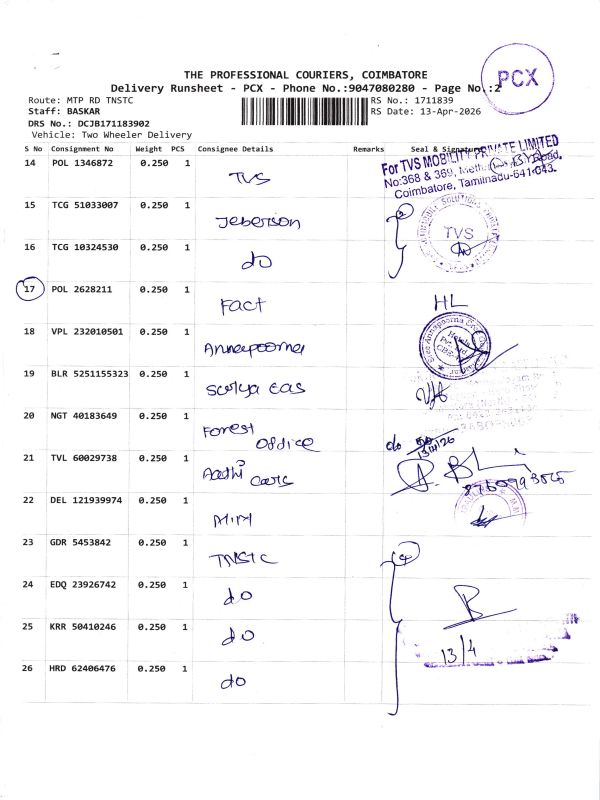 THE PROFESSIONAL COURIERS, COIMBATORE
Delivery Runsheet - PCX - Phone No.:9047080280 - Page No.:2
PCX
Route: MTP RD TNSTC
RS No.: 1711839
Staff: BASKAR
RS Date: 13-Apr-2026
DRS No.: DCJB171183902
Vehicle: Two Wheeler Delivery
S No Consignment No Weight PCS Consignee Details Remarks Seal & Signature
For TVS MOBILITY PRIVATE LIMITED
No:368 & 369, Road,
Coimbatore, Tamilnadu-641 043.
14 POL 1346872 0.250 1 TVS
15 TCG 51033007 0.250 1 Jeberson 2
TVS
16 TCG 10324530 0.250 1 do
17 POL 2628211 0.250 1 Fact HL
18 VPL 232010501 0.250 1 Annapoorna
19 BLR 5251155323 0.250 1 Surya Gas
20 NGT 40183649 0.250 1 Forest Office
13/4/26
21 TVL 60029738 0.250 1 Aathi Cars
22 DEL 121939974 0.250 1 MIM
23 GDR 5453842 0.250 1 TNSTC 4
24 EDQ 23926742 0.250 1 do
25 KRR 50410246 0.250 1 do
13/4
26 HRD 62406476 0.250 1 do